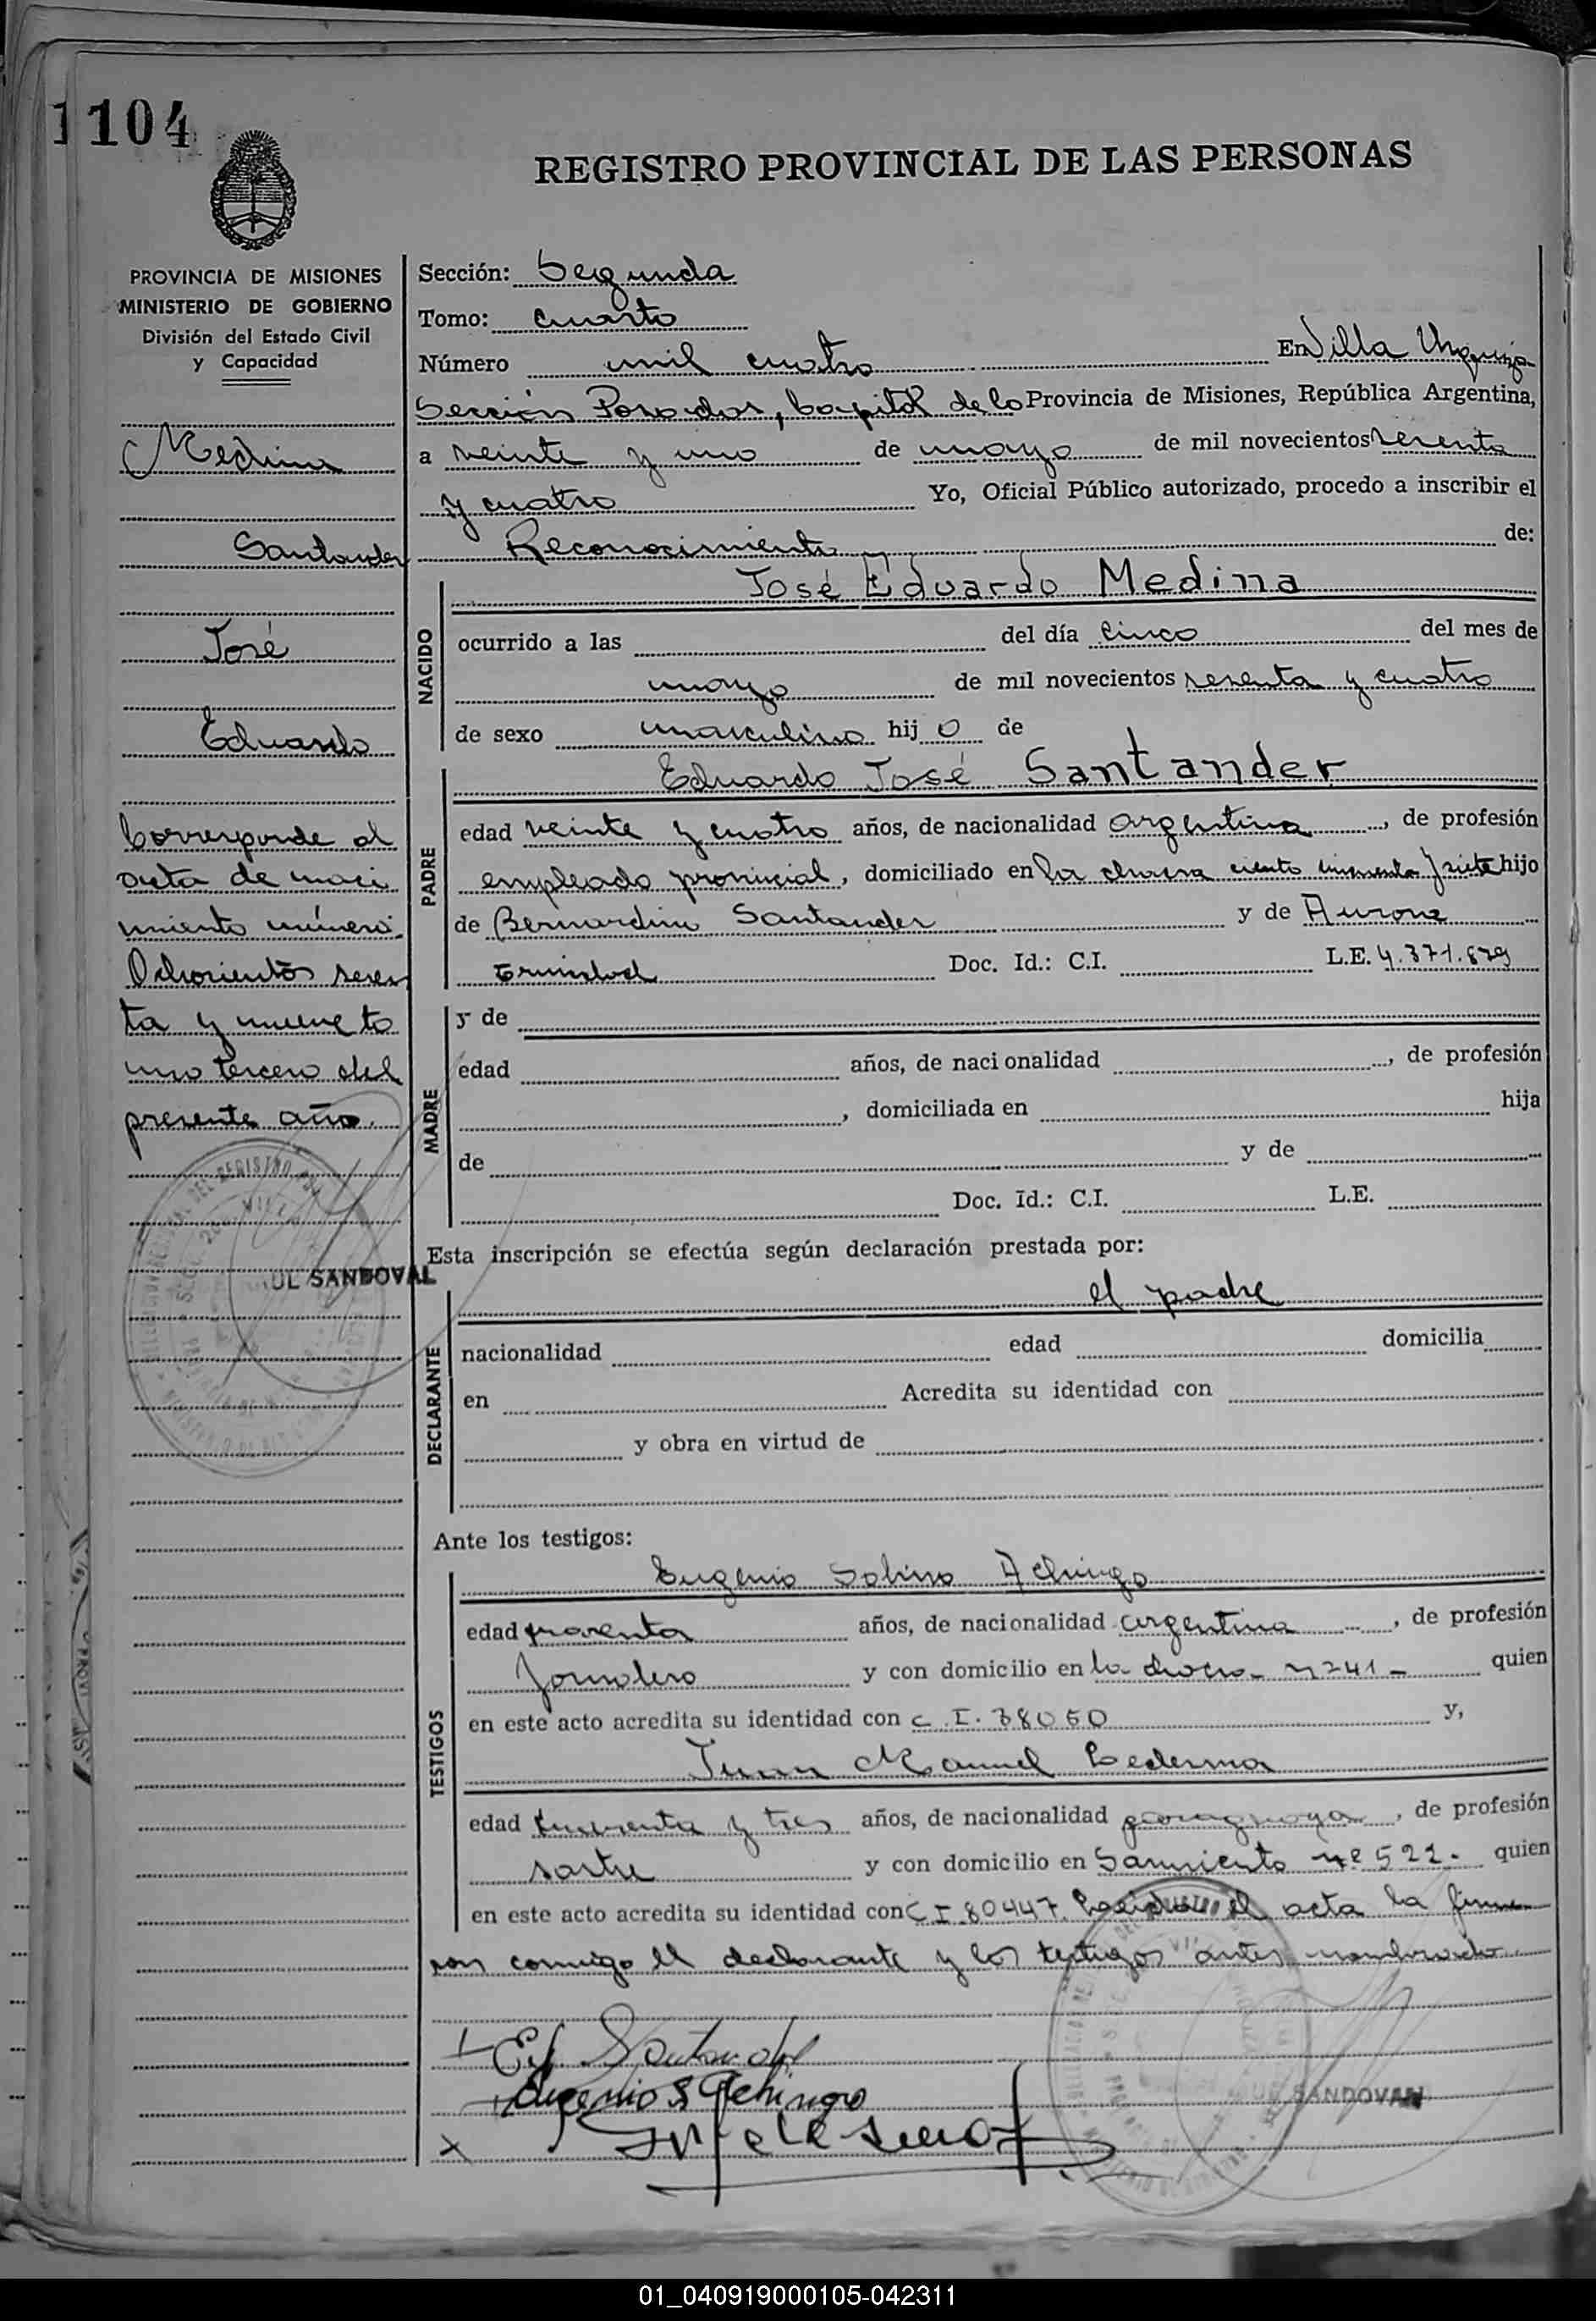 1104
REGISTRO PROVINCIAL DE LAS PERSONAS
PROVINCIA DE MISIONES
MINISTERIO DE GOBIERNO
División del Estado Civil
y Capacidad
Medina
Santander
José
Eduardo
Corresponde al
acta de naci
miento número
Ochocientos sesen
ta y nueve to
mo tercero del
presente año.
UL SANDOVAL
Sección: Segunda
Tomo: cuarto
Número mil cuatro En Villa Urquiza
Sección Posadas, Capital de la Provincia de Misiones, República Argentina,
a veinte y uno de mayo de mil novecientos sesenta
y cuatro Yo, Oficial Público autorizado, procedo a inscribir el
Reconocimiento de:
NACIDO
José Eduardo Medina
ocurrido a las del día cinco del mes de
mayo de mil novecientos sesenta y cuatro
de sexo masculino hij o de
PADRE
Eduardo José Santander
edad veinte y cuatro años, de nacionalidad argentina, de profesión
empleado provincial, domiciliado en la chacra ciento cincuenta y siete hijo
de Bernardino Santander y de
Trinidad Doc. Id.: C.I. L.E. 4.371.879
MADRE
y de
edad años, de nacionalidad , de profesión
, domiciliada en hija
de y de
Doc. Id.: C.I. L.E.
Esta inscripción se efectúa según declaración prestada por:
DECLARANTE
el padre
nacionalidad edad domicilia
en Acredita su identidad con
y obra en virtud de
Ante los testigos:
TESTIGOS
Eugenio Sabino Achinga
edad cuarenta años, de nacionalidad argentina, de profesión
Jornalero y con domicilio en la chacra n 241 - quien
en este acto acredita su identidad con C.I. 38050 y,
Juan Manuel Ledesma
edad y tres años, de nacionalidad paraguaya, de profesión
sastre y con domicilio en Sarmiento nº 521. quien
en este acto acredita su identidad con C I 80447. Leida el acta la firma
ron conmigo el declarante y los testigos antes nombrados.
SANDOVAL
01_040919000105-042311